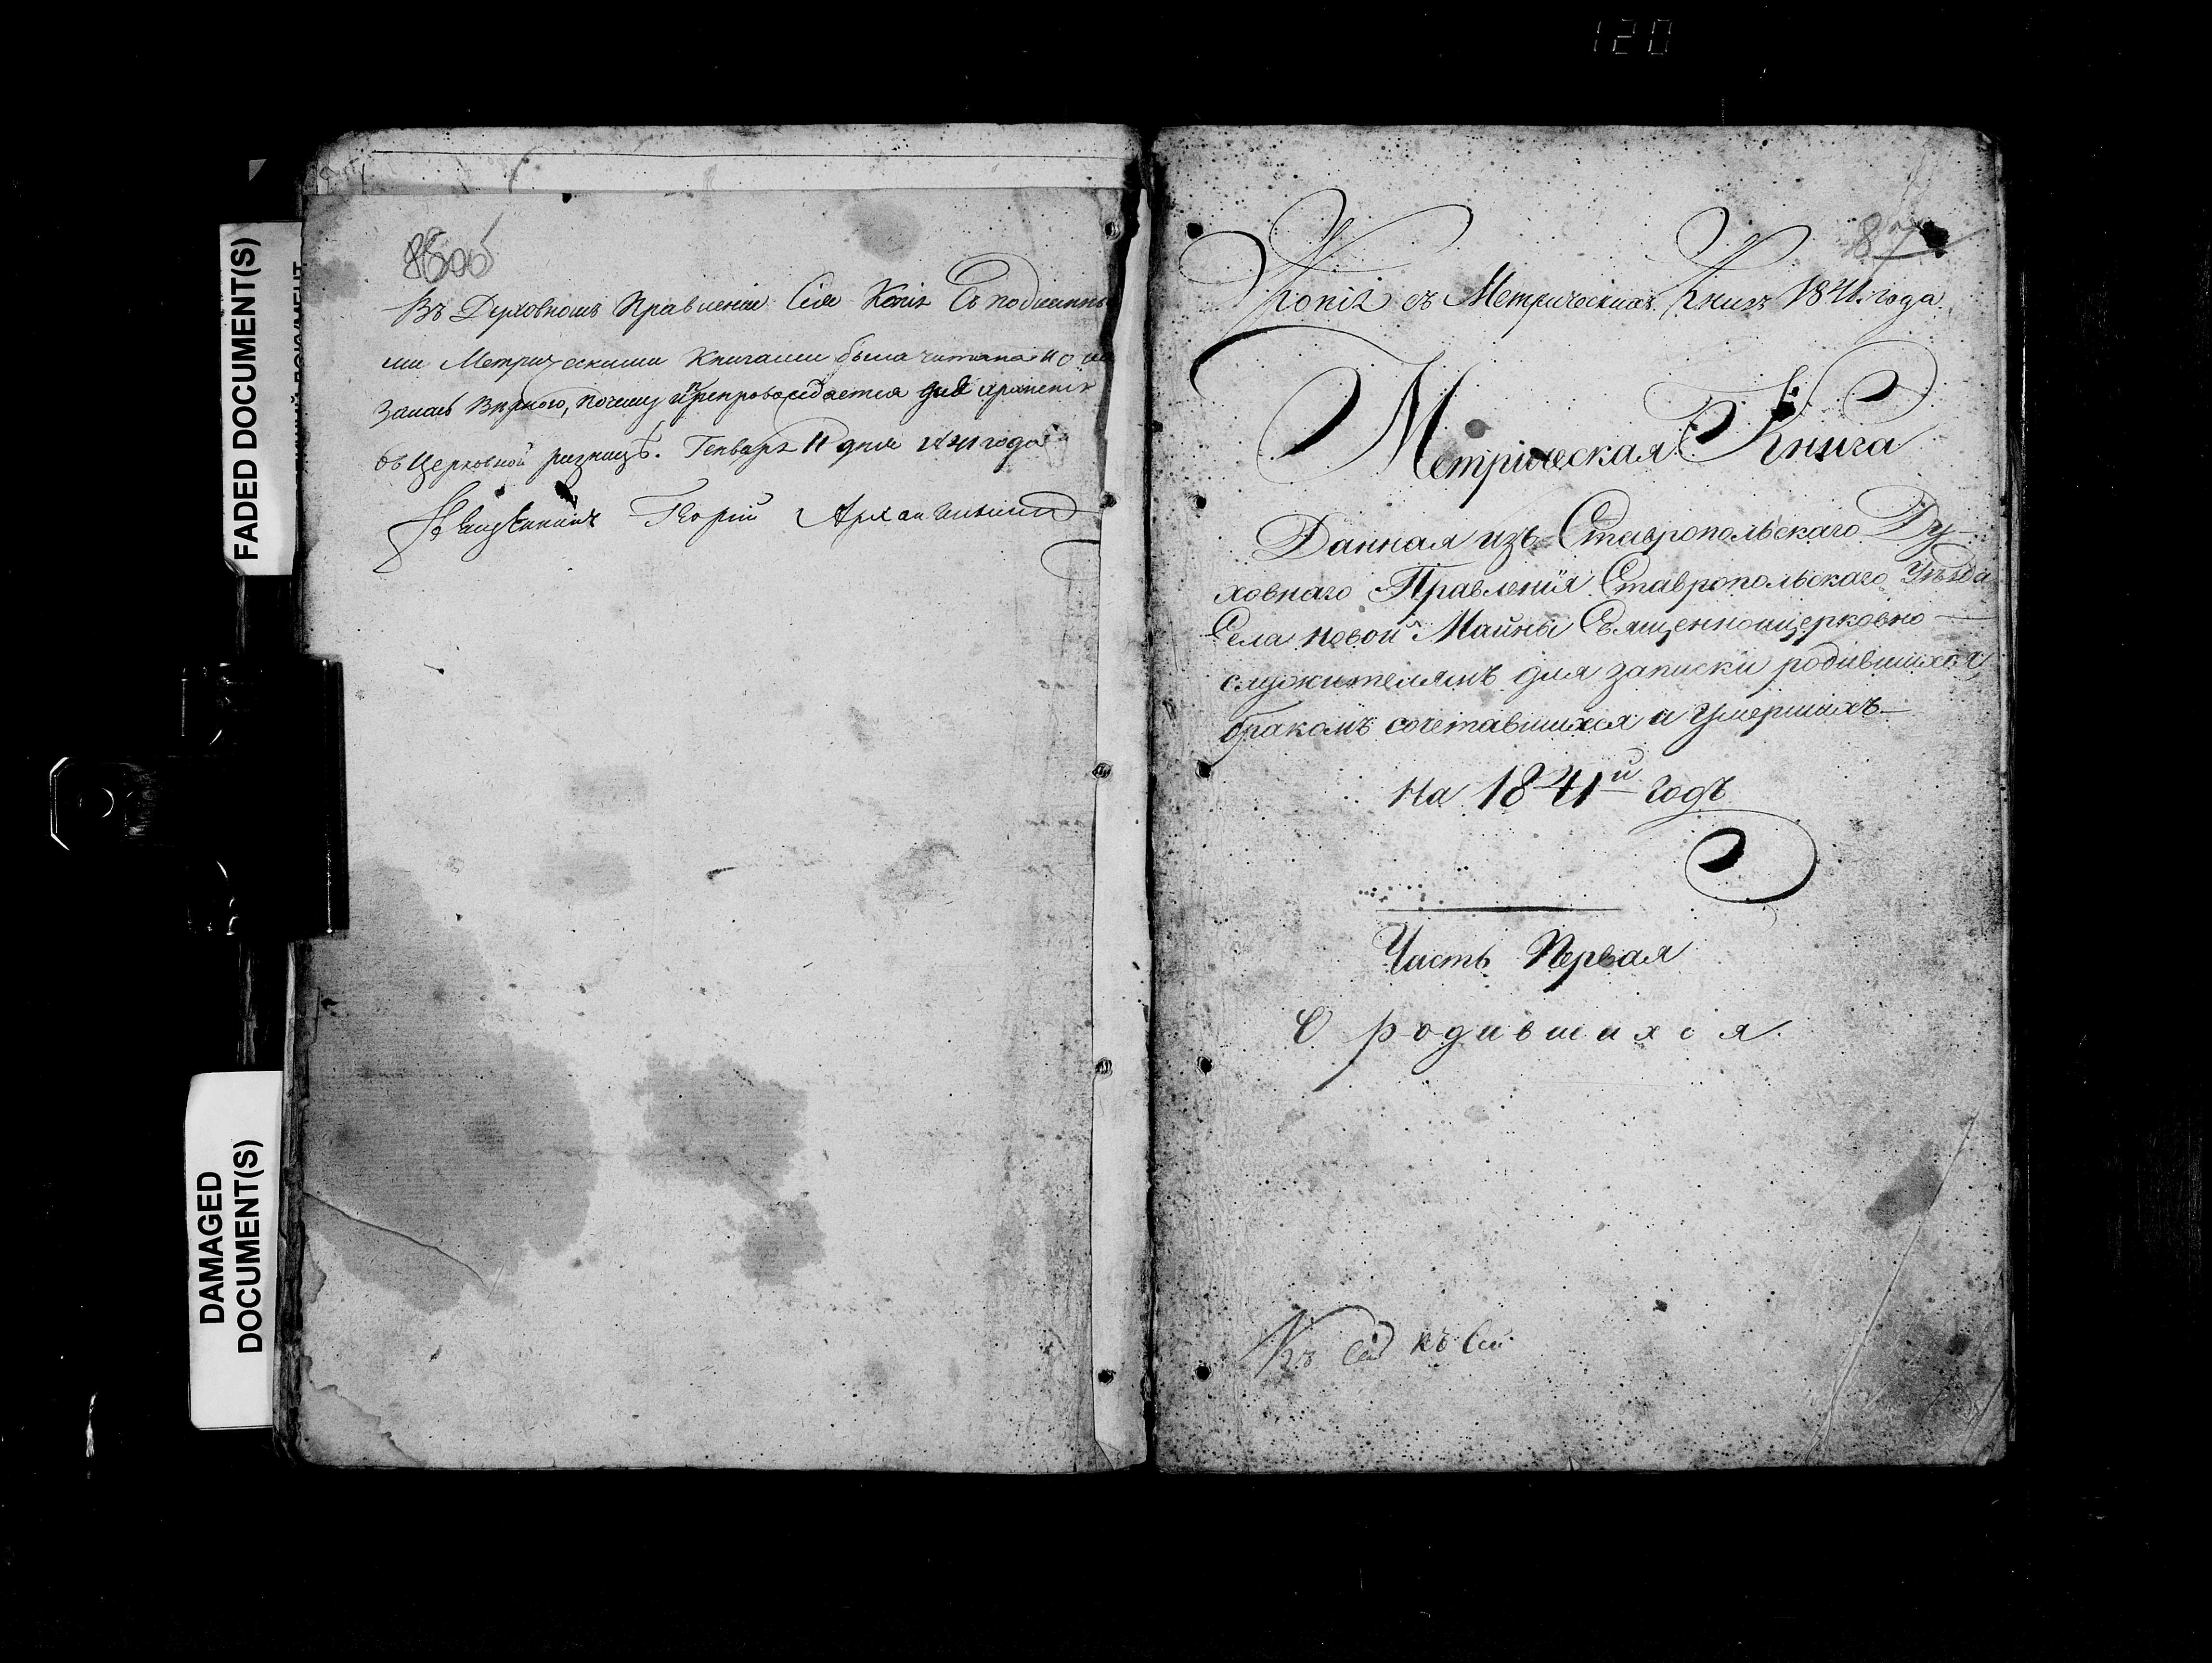 120
FADED DOCUMENT(S)
DAMAGED
DOCUMENT(S)
Въ Духовномъ Правленіи Сія Копія Съ подлинны
ми Метрическими Книгами была читана и ока
залась Вѣрною, почему и препровождается для храненія
въ Церковной ризницѣ. Генваря 11 дня 1841 года
Священникъ Георгій Архангельскій
87
Копія съ Метрическихъ Книгъ 1841. года
Метрическая Книга
Данная изъ Ставропольскаго Ду-
ховнаго Правленія Ставропольскаго Уѣзда
Села Новой Майны Священноцерковно-
служителямъ для записки родившихся,
бракомъ сочетавшихся и Умершихъ
На 1841й Годъ
Часть Первая
О родившихся.
Къ Сей къ Сей